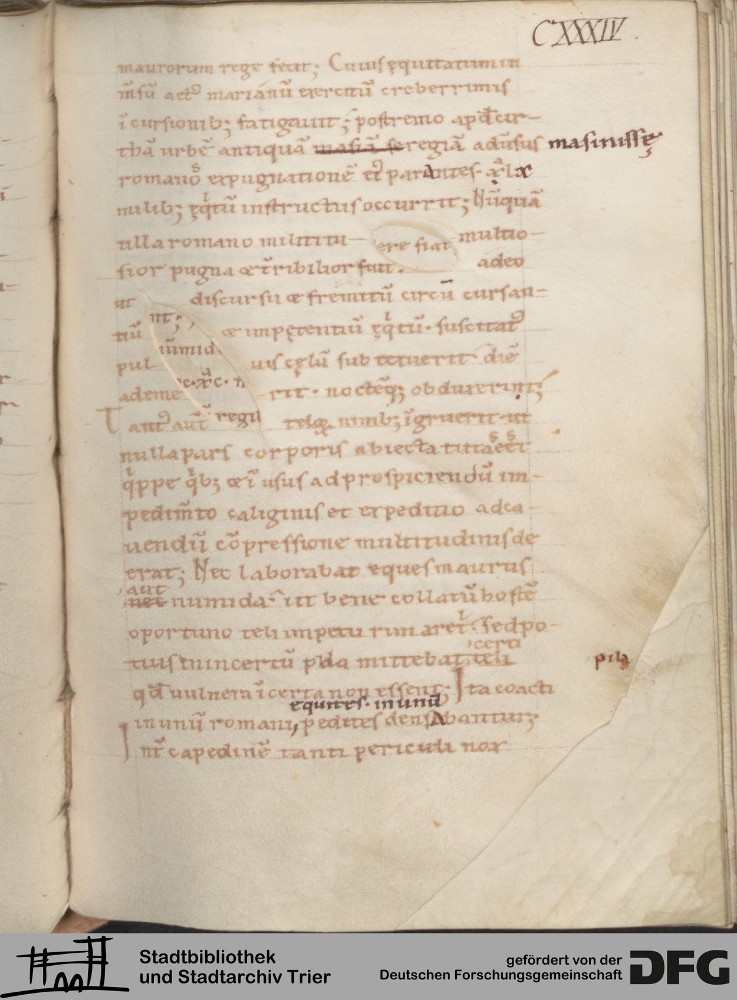 CXXXIV
maurorum rege fecit; Cuius equitatum in
m̄sū act᷒ marianū exercitū creberrimis
īcursionib; fatigauit; postremo ap̄d cir-
thā urbē antiquā masiā se regiā adūsus masinissę
romanoˢ expugnationē ei᷒ parantes. lx
milib; eq̄tū instructus occurrit; Nūquā
ulla romano militi tu- ere fiat multio-
sior pugna & t̄ribilior fuit. adeo
ut discursu & fremitū circū cursan-
tiū nt; & impetentiū eq̄tū. suscitat᷒
pul iumid uis cęlū subtexuerit diē
ademe rit. noctēq; obduxerint;
Tant᷒ aut̄ regu telo℞ nimb; īgruerit ut
nulla pars corporis ab iecta tuta eēt
q̄ppe q̄b; & usus ad prospiciendū im-
pedim̄to caliginis et expeditio ad ca-
uendū cōpressione multitudinis de
erat; Nec laborabat eques maurus
aut
nec numida ut bene collatū hostē
oportuno teli impetu rimaret̄. Sed po-
certi
tius in incertū mittebat teli pilȩ
qđ uulnera īcerta non essent; Ita coacti
equites. in unū
in unū romani, pedites densabantur;
Int̄capedinē tanti periculi nox
Stadtbibliothek
und Stadtarchiv Trier
gefördert von der
Deutschen Forschungsgemeinschaft
DFG